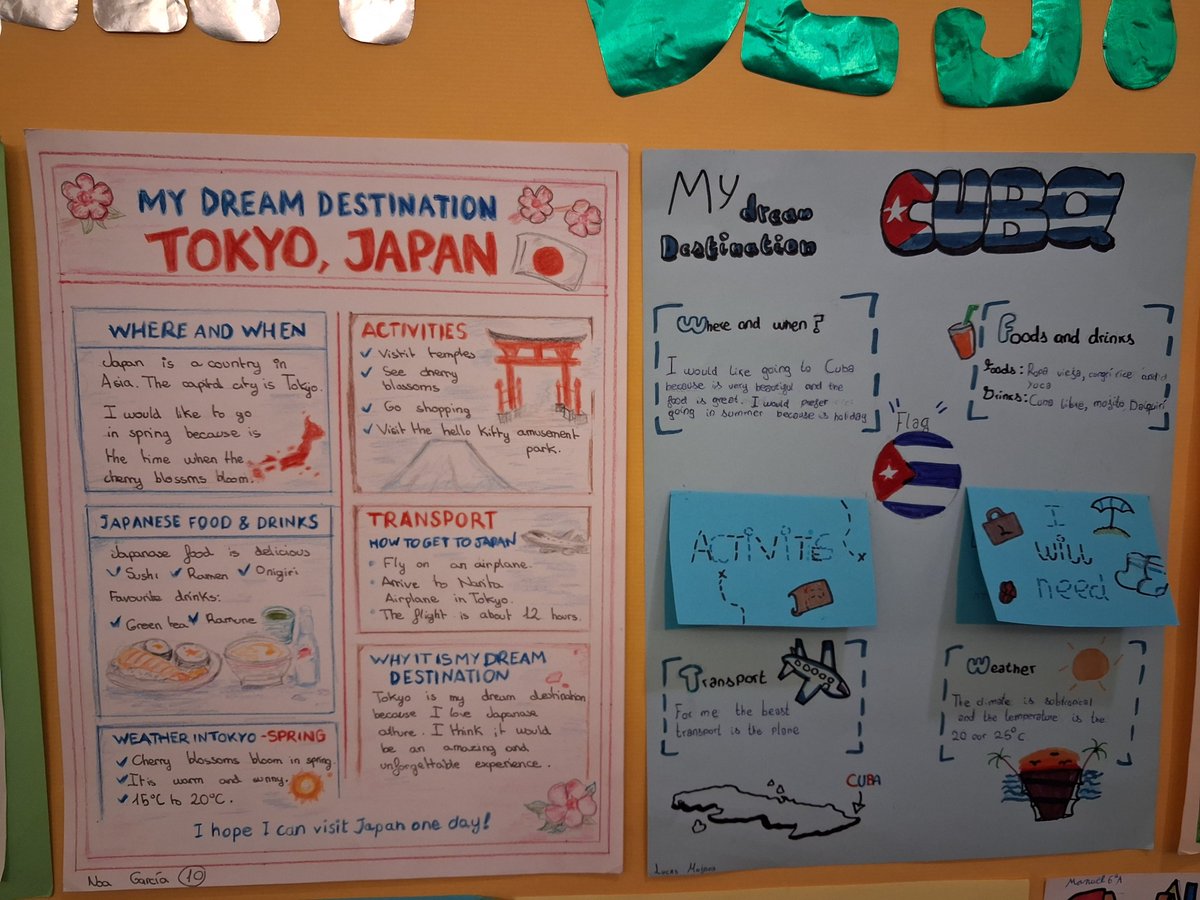 MY DREAM DESTINATION
TOKYO, JAPAN
WHERE AND WHEN
Japan is a country in
Asia. The capital city is Tokyo.
I would like to go
in spring because is
the time when the
cherry blossms bloom.
JAPANESE FOOD & DRINKS
Japanese food is delicious
Sushi Ramen Onigiri
Favourite drinks:
Green tea Ramune
WEATHER IN TOKYO - SPRING
Cherry blossoms bloom in spring.
It is warm and sunny.
15°C to 20°C.
ACTIVITIES
temples
See cherry
blassoms
Go shopping
Visit the hello Kitty amusement
park.
TRANSPORT
HOW TO GET TO JAPAN
Fly on an airplane.
Arrive to Narita
Airplane in Tokyo.
The flight is about 12 hours.
WHY IT IS MY DREAM
DESTINATION
Tokyo is my dream destination
because I love Japanese
culture. I think it would
be an amazing and
unforgettable experience.
I hope I can visit Japan one day!
Noa García 10
My dream
Destination
CUBA
Where and when?
I would like going to Cuba
because is very beautiful and the
food is great. I would prefer
going in summer because is holiday
Foods and drinks
Foods: Ropa vieja, congri rice and
yuca
Drinks: Cuna libre, mojito, Daiquiri
Flag
ACTIVITIES
I
will
need
Transport
For me the beast
transport is the plane
Weather
The climate is subtropical
and the temperature is the
20 our 25°C
CUBA
Lucas
Manuel 6ºA